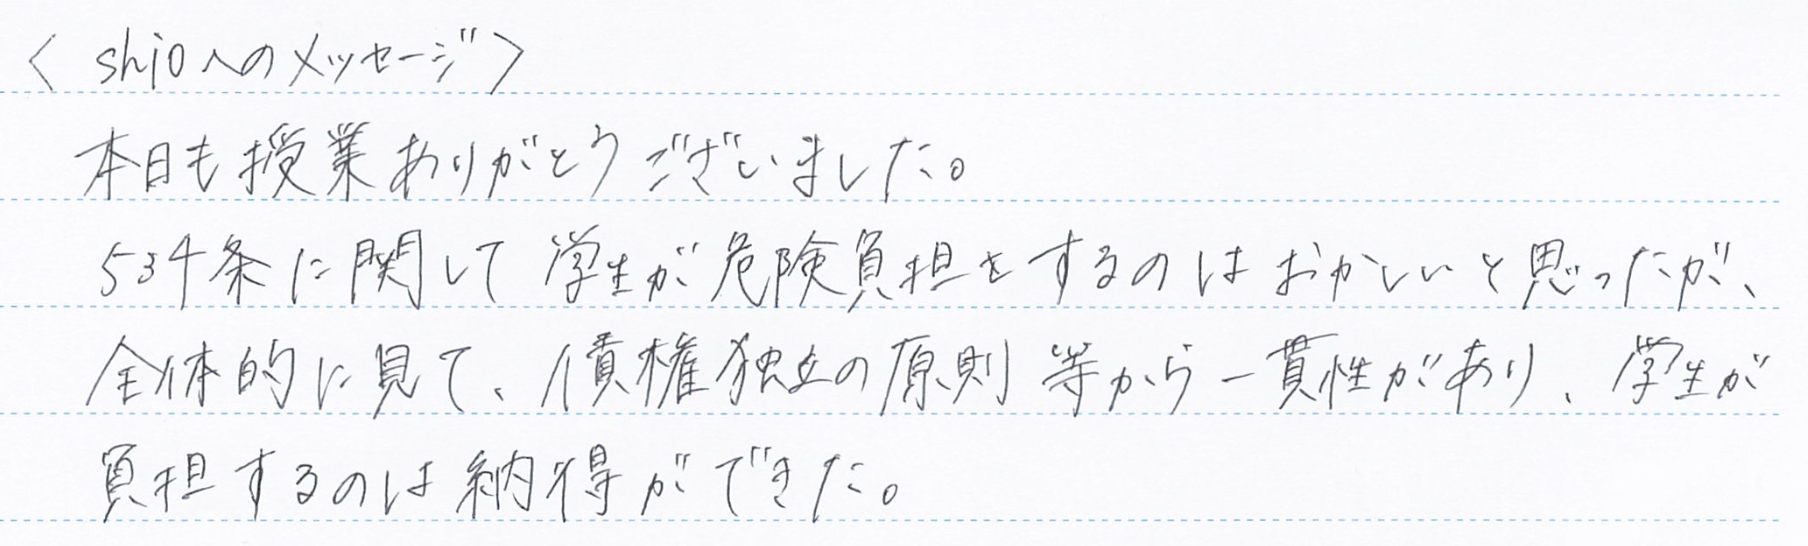 〈 shioへのメッセージ〉
本日も授業ありがとうございました。
534条に関して学生が危険負担をするのはおかしいと思ったが、
全体的に見て、債権独立の原則等から一貫性があり、学生が
負担するのは納得ができた。